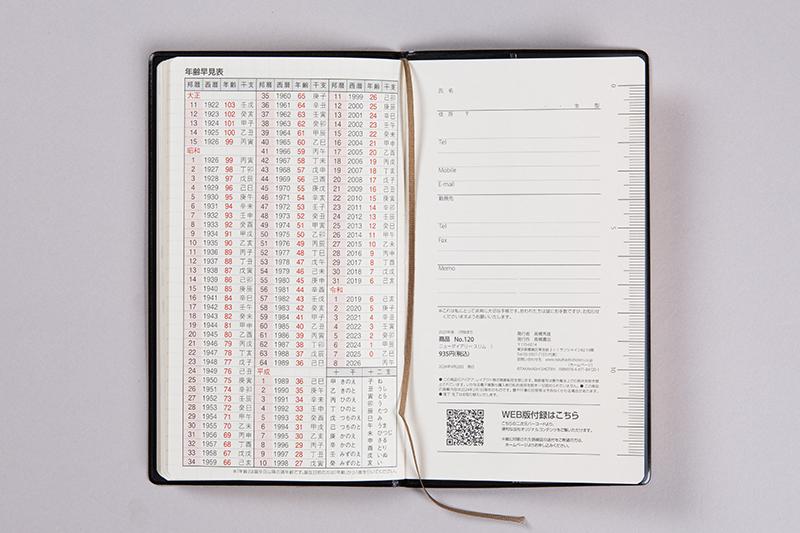 年齢早見表
邦暦 西暦 年齢 干支
大正
11 1922 103 壬戌
12 1923 102 癸亥
13 1924 101 甲子
14 1925 100 乙丑
15 1926 99 丙寅
昭和
1 1926 99 丙寅
2 1927 98 丁卯
3 1928 97 戊辰
4 1929 96 己巳
5 1930 95 庚午
6 1931 94 辛未
7 1932 93 壬申
8 1933 92 癸酉
9 1934 91 甲戌
10 1935 90 乙亥
11 1936 89 丙子
12 1937 88 丁丑
13 1938 87 戊寅
14 1939 86 己卯
15 1940 85 庚辰
16 1941 84 辛巳
17 1942 83 壬午
18 1943 82 癸未
19 1944 81 甲申
20 1945 80 乙酉
21 1946 79 丙戌
22 1947 78 丁亥
23 1948 77 戊子
24 1949 76 己丑
25 1950 75 庚寅
26 1951 74 辛卯
27 1952 73 壬辰
28 1953 72 癸巳
29 1954 71 甲午
30 1955 70 乙未
31 1956 69 丙申
32 1957 68 丁酉
33 1958 67 戊戌
34 1959 66 己亥
邦暦 西暦 年齢 干支
35 1960 65 庚子
36 1961 64 辛丑
37 1962 63 壬寅
38 1963 62 癸卯
39 1964 61 甲辰
40 1965 60 乙巳
41 1966 59 丙午
42 1967 58 丁未
43 1968 57 戊申
44 1969 56 己酉
45 1970 55 庚戌
46 1971 54 辛亥
47 1972 53 壬子
48 1973 52 癸丑
49 1974 51 甲寅
50 1975 50 乙卯
51 1976 49 丙辰
52 1977 48 丁巳
53 1978 47 戊午
54 1979 46 己未
55 1980 45 庚申
56 1981 44 辛酉
57 1982 43 壬戌
58 1983 42 癸亥
59 1984 41 甲子
60 1985 40 乙丑
61 1986 39 丙寅
62 1987 38 丁卯
63 1988 37 戊辰
64 1989 36 己巳
平成
1 1989 36 己巳
2 1990 35 庚午
3 1991 34 辛未
4 1992 33 壬申
5 1993 32 癸酉
6 1994 31 甲戌
7 1995 30 乙亥
8 1996 29 丙子
9 1997 28 丁丑
10 1998 27 戊寅
邦暦 西暦 年齢 干支
11 1999 26 己卯
12 2000 25 庚辰
13 2001 24 辛巳
14 2002 23 壬午
15 2003 22 癸未
16 2004 21 甲申
17 2005 20 乙酉
18 2006 19 丙戌
19 2007 18 丁亥
20 2008 17 戊子
21 2009 16 己丑
22 2010 15 庚寅
23 2011 14 辛卯
24 2012 13 壬辰
25 2013 12 癸巳
26 2014 11 甲午
27 2015 10 乙未
28 2016 9 丙申
29 2017 8 丁酉
30 2018 7 戊戌
31 2019 6 己亥
令和
1 2019 6 己亥
2 2020 5 庚子
3 2021 4 辛丑
4 2022 3 壬寅
5 2023 2 癸卯
6 2024 1 甲辰
7 2025 0 乙巳
8 2026 丙午
十干 十二支
甲 きのえ 子 ね
乙 きのと 丑 うし
丙 ひのえ 寅 とら
丁 ひのと 卯 う
戊 つちのえ 辰 たつ
己 つちのと 巳 み
庚 かのえ 午 うま
辛 かのと 未 ひつじ
壬 みずのえ 申 さる
癸 みずのと 酉 とり
戌 いぬ
亥 い
氏名
年 型
住所 〒
Tel
Mobile
E-mail
勤務先
Tel
Fax
Memo
0
5
10
商品 No.120
ニューダイアリー スリム 1
935円(税込)
発行者 高橋秀雄
発行所 高橋書店
WEB版付録はこちら
こちらの二次元バーコードより、
便利な当社オリジナルコンテンツをご覧いただけます。